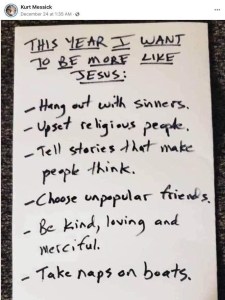 Kurt Messick
December 24 at 1:08 AM
THIS YEAR I WANT
TO BE MORE LIKE
JESUS:
- Hang out with sinners.
- Upset religious people.
- Tell stories that make
people think.
- Choose unpopular friends.
- Be kind, loving and
merciful.
- Take naps on boats.